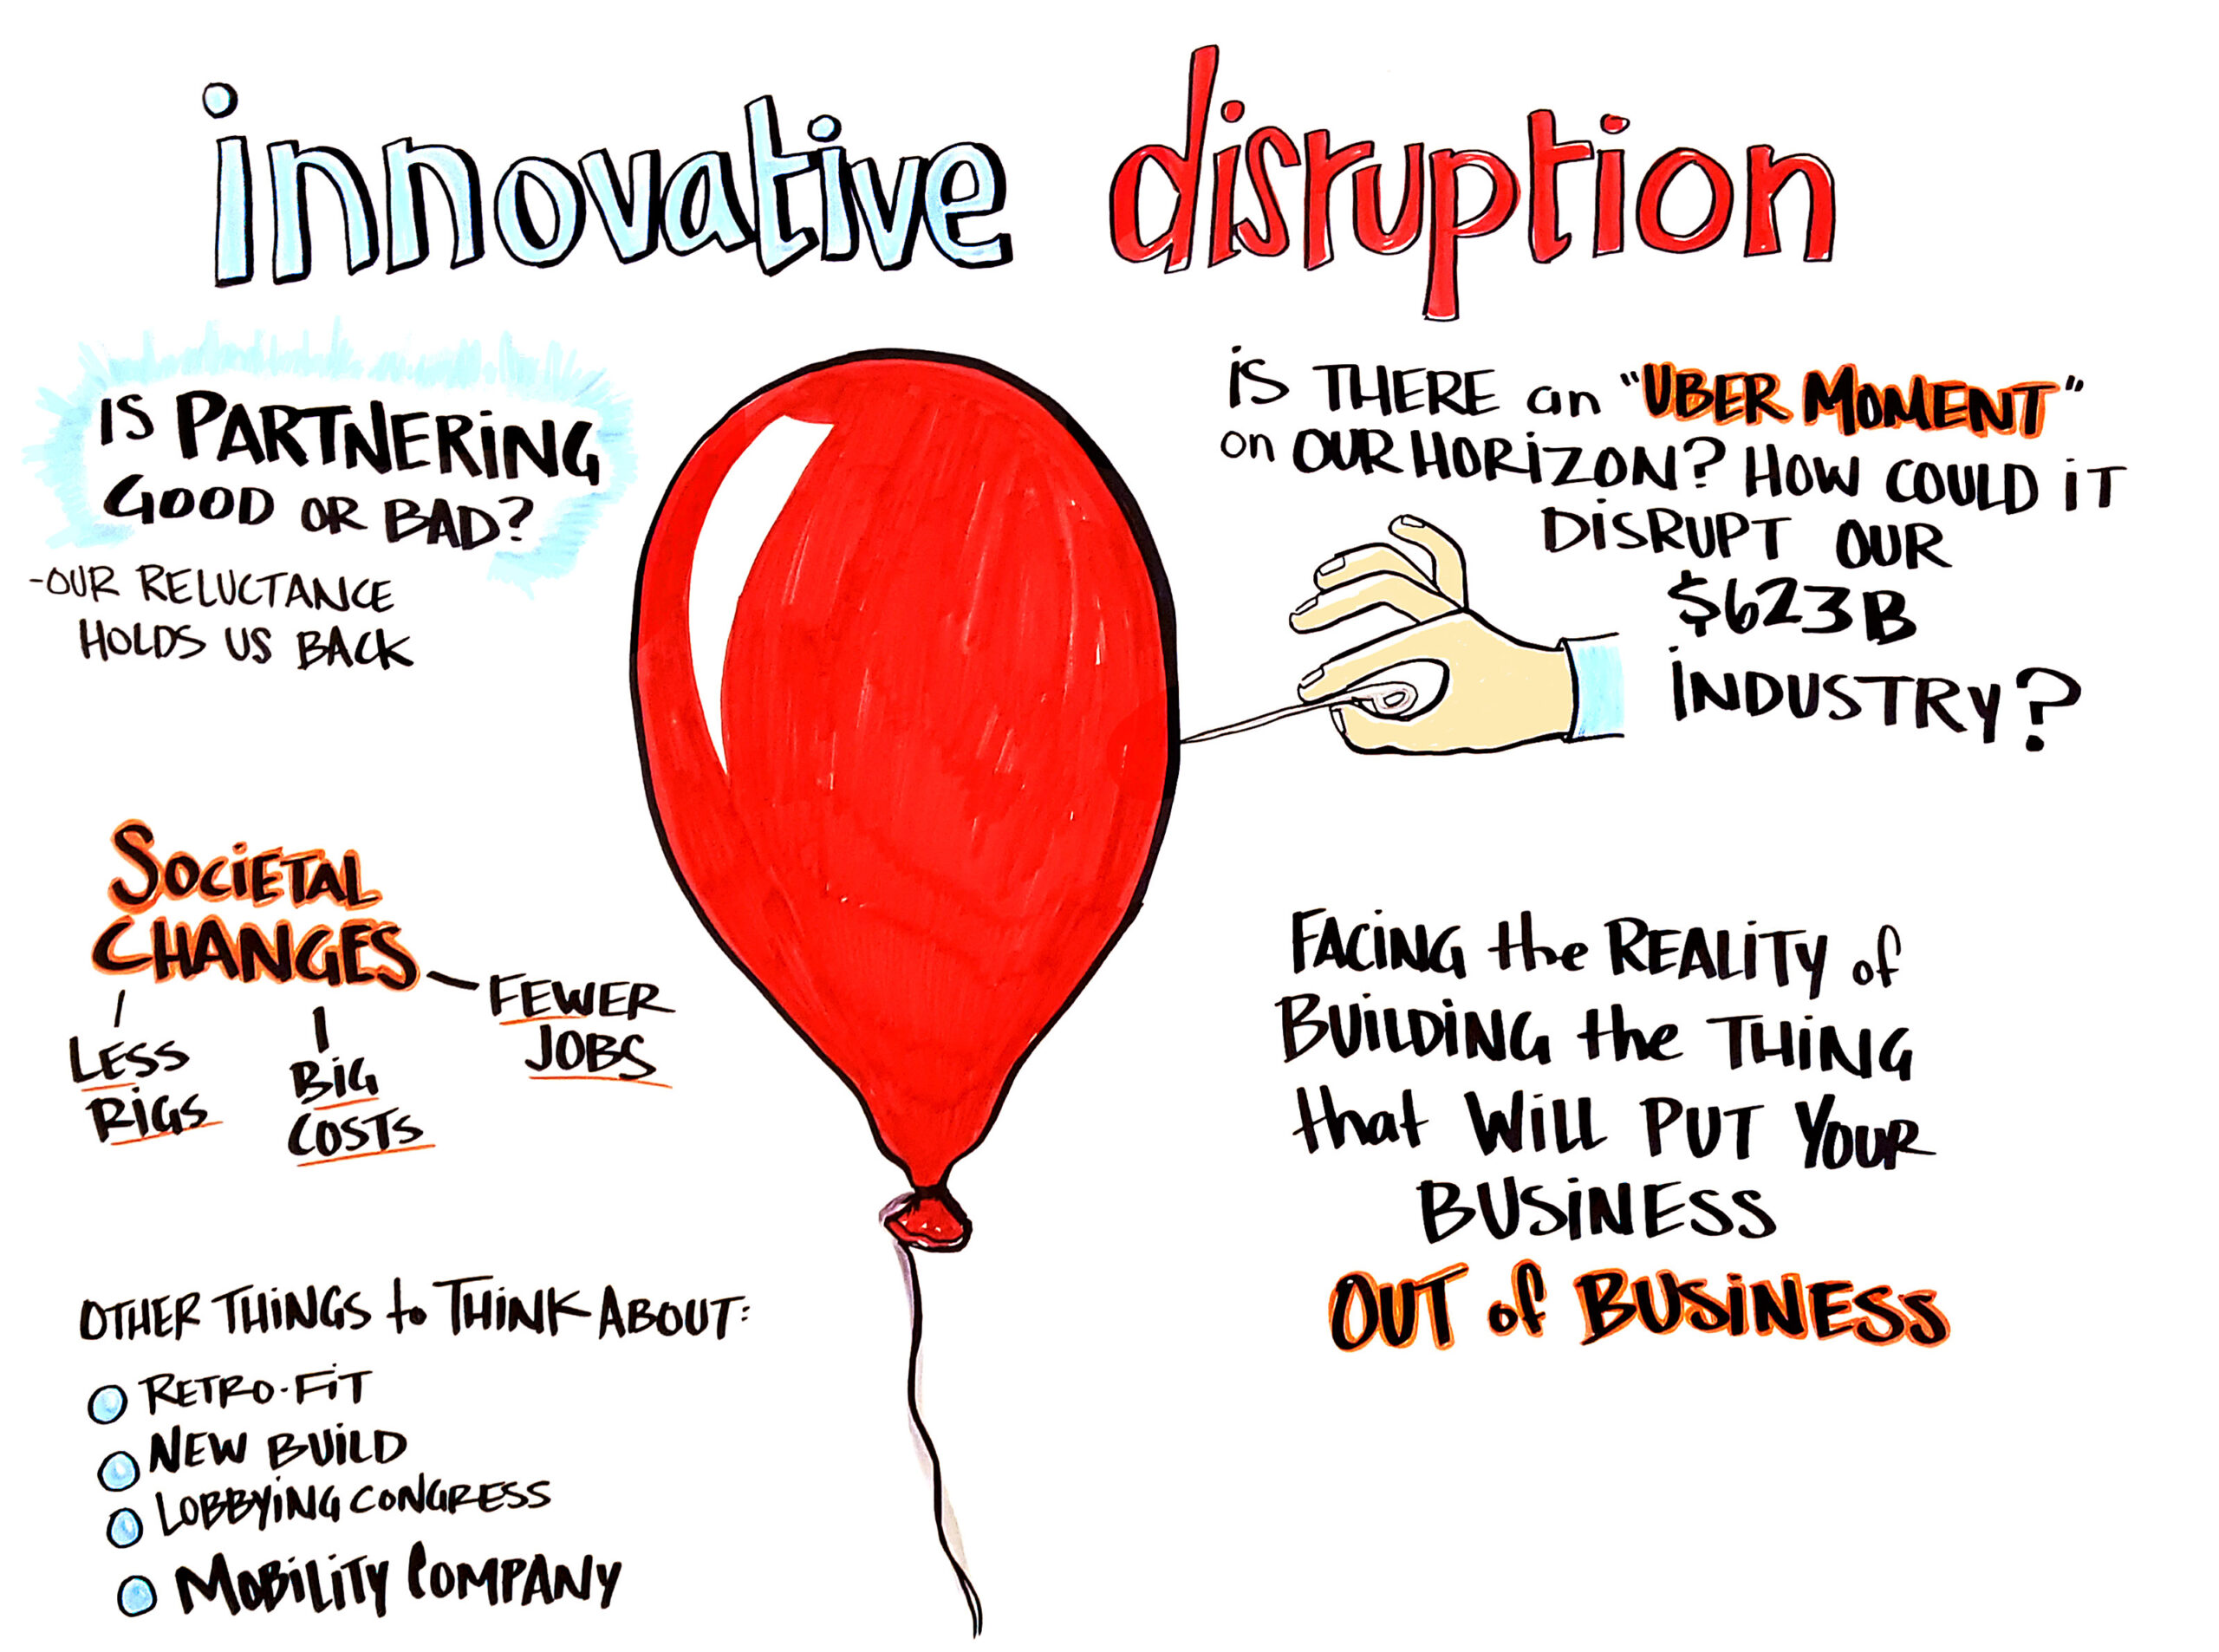 innovative disruption
IS PARTNERING
GOOD OR BAD?
-OUR RELUCTANCE
HOLDS US BACK
IS THERE an "UBER MOMENT"
on OUR HORIZON? HOW COULD IT
DISRUPT OUR
$623B
INDUSTRY?
SOCIETAL
CHANGES
LESS
RIGS
BIG
COSTS
FEWER
JOBS
FACING the REALITY of
BUILDING the THING
that WILL PUT YOUR
BUSINESS
OUT of BUSINESS
OTHER THINGS to THINK ABOUT:
RETRO-FIT
NEW BUILD
LOBBYING CONGRESS
MOBILITY COMPANY